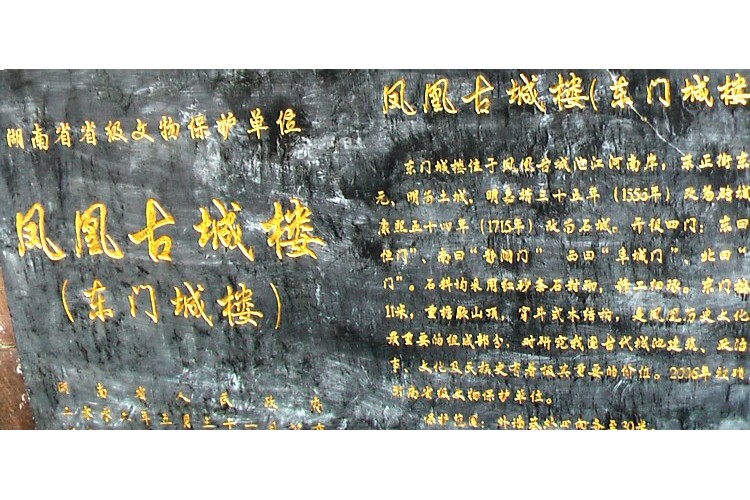 湖南省省级文物保护单位
凤凰古城楼
(东门城楼)
湖南省人民政府
二零零六年五月三十一日
凤凰古城楼(东门城楼
东门城楼位于凤凰古城沱江河南岸,东正街东
元、明为土城,明嘉靖三十五年(1556年)改为砖城
康熙五十四年(1715年)改为石城,开设四门:东曰
恒门”、南曰“静阑门” 西曰“阜城门”、北曰“
门”。石料均采用红砂条石封砌,精工细琢。东门楼
11米,重檐歇山顶,穿斗式木结构,是凤凰历史文化
最重要的组成部分,对研究我国古代城池建筑、政治
事、文化及民族史有着极其重要的价值。2006年被
湖南省级文物保护单位。
保护范围:外 至30米。